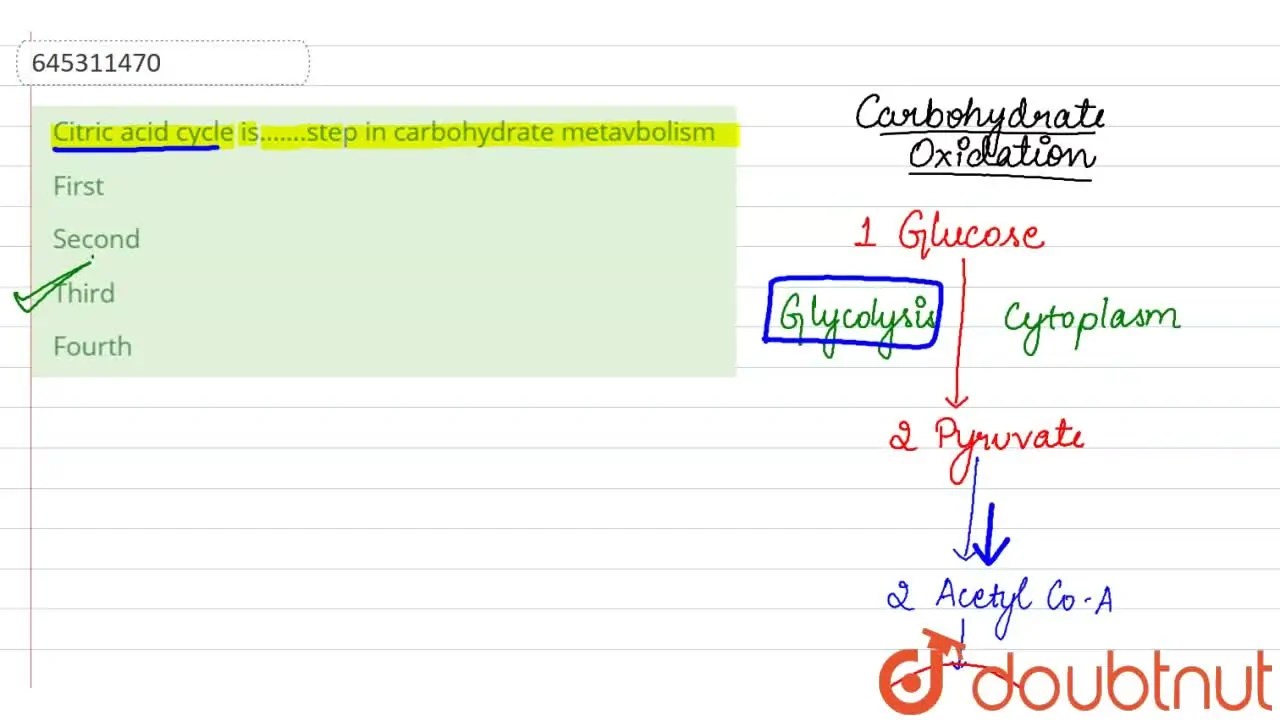 645311470
Citric acid cycle is.......step in carbohydrate metavbolism
First
Second
Third
Fourth
Carbohydrate
Oxidation
1 Glucose
Glycolysis Cytoplasm
2 Pyruvate
2 Acetyl Co-A
doubtnut